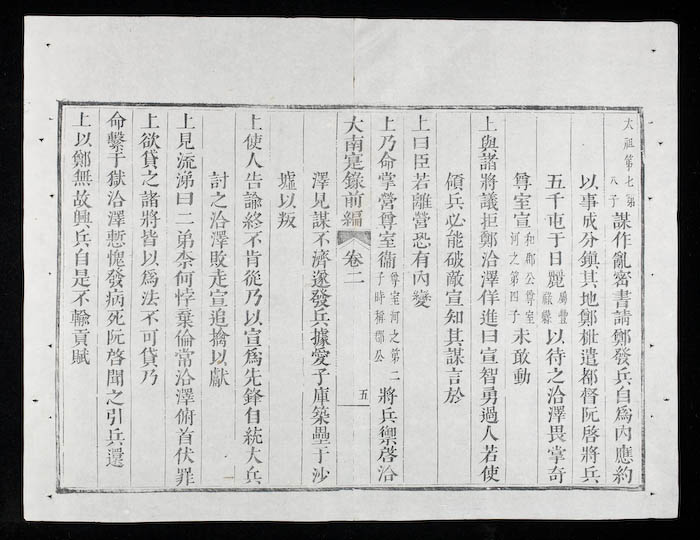 太祖第七第
八子謀作亂密書請鄭發兵自爲内應約
以事成分鎮其地鄭梉遣都督阮啓將兵
五千屯于日麗屬豐
祿縣以待之洽澤畏掌奇
尊室宣和郡公尊室
河之第四子未敢動
上與諸將議拒鄭洽澤佯進曰宣智勇過人若使
領兵必能破敵宣知其謀言於
上曰臣若離營恐有内變
上乃命掌營尊室衛尊室河之第二
子時稱郡公將兵禦啓洽
大南寔錄前編
卷二
五
澤見謀不濟遂發兵據愛子庫築壘于沙
墟以叛
上使人告諭終不肯從乃以宣爲先鋒自統大兵
討之洽澤敗走宣追擒以獻
上見流涕曰二弟柰何悖棄倫常洽澤俯首伏罪
上欲貸之諸將皆以爲法不可貸乃
命繫于獄洽澤慙愧發病死阮啓聞之引兵還
上以鄭無故興兵自是不輸貢賦